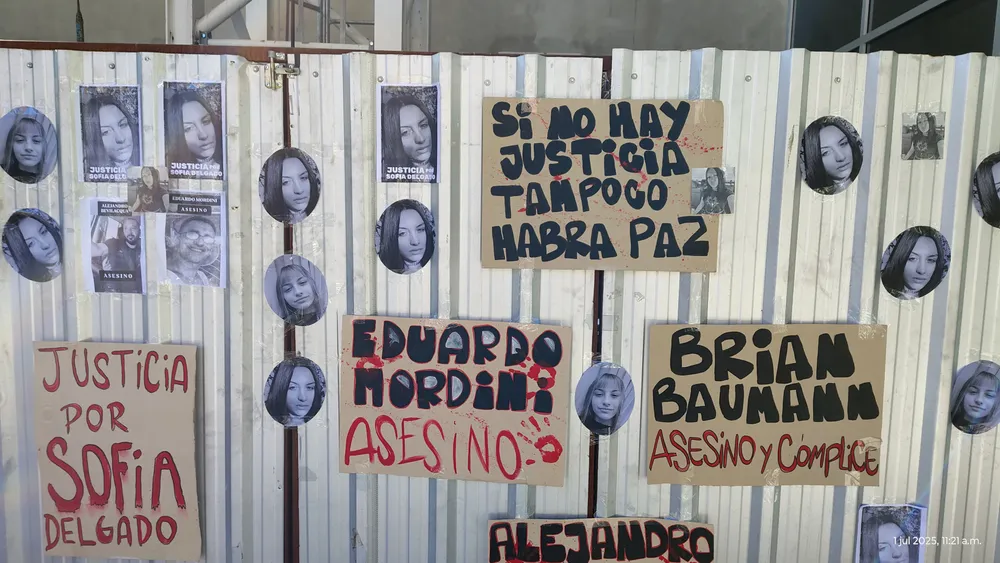 JUSTICIA POR
SOFIA DELGADO
JUSTICIA POR
SOFIA DELGADO
JUSTICIA POR
SOFIA DELGADO
ALEJANDRO
BEVILACQUA
ASESINO
EDUARDO MORDINI
ASESINO
Si NO HAY
JUSTiCiA
TAMPOCO
HABRA PAZ
JUSTiCiA
POR
SOFiA
DELGADO
EDUARDO
MORDiNi
ASESiNO
BRiAN
BAUMANN
ASESiNO y CóMPLiCE
ALEJANDRO
1 jul 2025, 11:21 a.m.